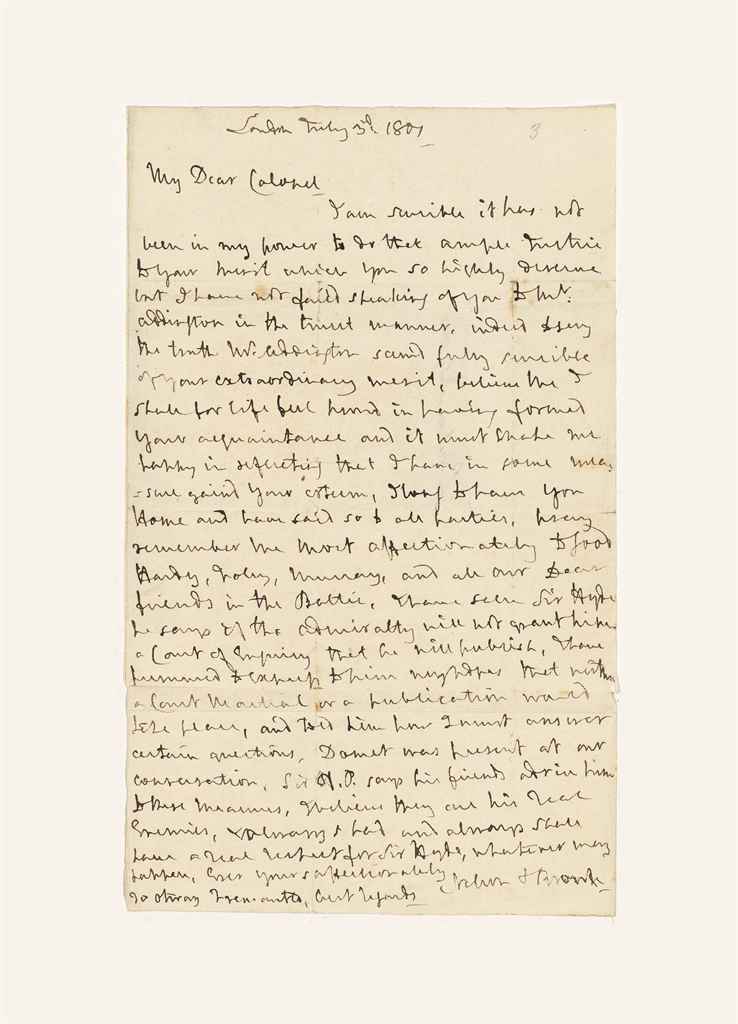 London July 3d. 1801
3
My Dear Colonel
I am sensible it has not
been in my power to do that ample Justice
to your merit which you so highly deserve
but I have not faild speaking of you to Mr.
Addington in the truest manner, indeed to say
the truth Mr. Addington seemd fully sensible
of your extraordinary merit, believe me I
shall for life feel proud in having formed
your acquaintance and it must make me
happy in reflecting that I have in some mea=
=sure gaind your esteem, I long to have you
Home and have said so to all parties, pray
remember me most affectionately to good
Hardy, Foley, Murray, and all our Dear
friends in the Baltic, I have seen Sir Hyde
he says if the Admiralty will not grant him
a Court of Enquiry that he will publish, I have
presumed to express to him my hopes that neither
a Court Martial or a publication would
take place, and told him how I must answer
certain questions, Domet was present at our
conversation, Sir H. P. says his friends advise him
to these measures, I believe they are his real
Enemies, I always had and always shall
have a real respect for Sir Hyde, whatever may
happen, Ever yours affectionately Nelson & Bronte
to Otway Fremantle, best regards